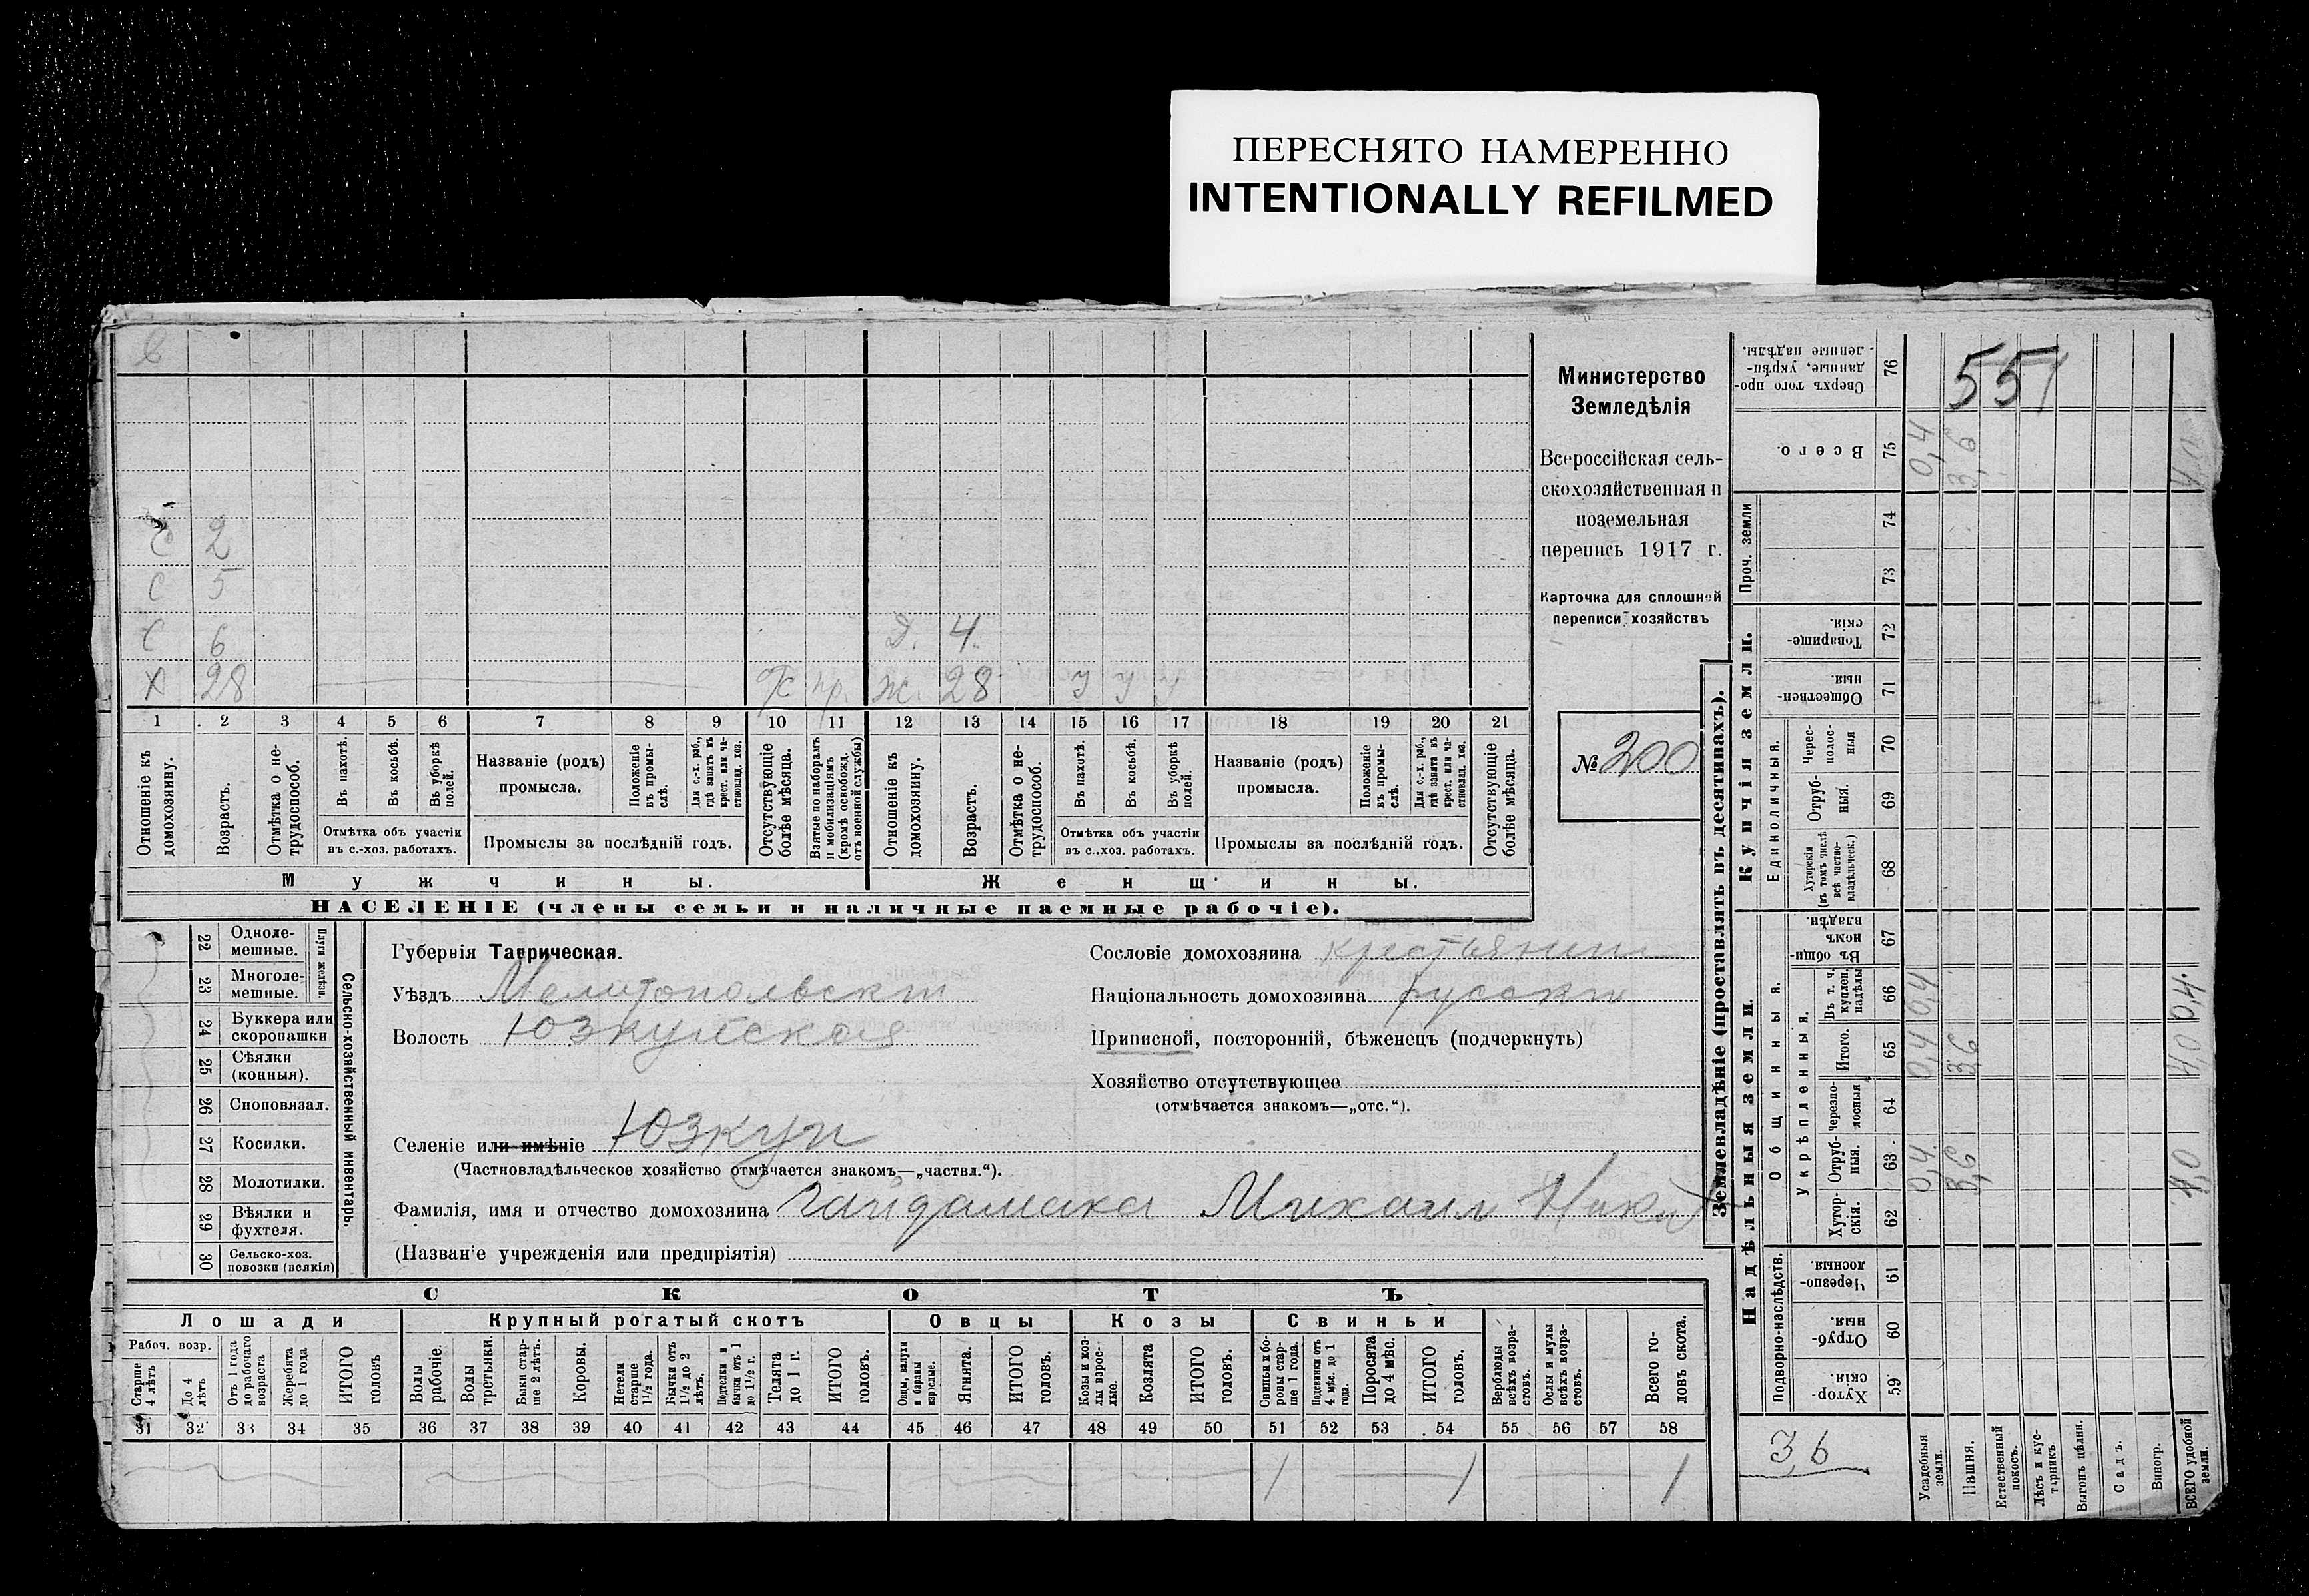 ПЕРЕСНЯТО НАМЕРЕННО
INTENTIONALLY REFILMED
С 2
С 5
С 6
Д. 4.
Х 28
пр. ж. 28 у у у
1 2 3 4 5 6 7 8 9 10 11 12 13 14 15 16 17 18 19 20 21
Отношеніе къ домохозяину.
Возрастъ.
Отмѣтка о не-трудоспособ.
Въ пахотѣ.
Въ косьбѣ.
Въ уборкѣ полей.
Отмѣтка объ участіи
въ с.-хоз. работахъ.
Названіе (родъ)
промысла.
Положеніе въ промы-слѣ.
Для с.-х. раб., гдѣ занятъ въ крест. или ча-стновлад. хоз.
Промыслы за послѣдній годъ.
Отсутствующіе болѣе мѣсяца.
Взятые по наборамъ и мобилизаціямъ (кромѣ освобожд. отъ военной службы)
Отношеніе къ домохозяину.
Возрастъ.
Отмѣтка о не-трудоспособ.
Въ пахотѣ.
Въ косьбѣ.
Въ уборкѣ полей.
Отмѣтка объ участіи
въ с.-хоз. работахъ.
Названіе (родъ)
промысла.
Положеніе въ промы-слѣ.
Для с.-х. раб., гдѣ занята въ крест. или ча-стновлад. хоз.
Промыслы за послѣдній годъ.
Отсутствующіе болѣе мѣсяца.
Мужчины.
Женщины.
НАСЕЛЕНІЕ (члены семьи и наличные наемные рабочіе).
Министерство
Земледѣлія
Всероссійская сель-
скохозяйственная и
поземельная
перепись 1917 г.
Карточка для сплошной
переписи хозяйствъ
№ 200
22 Одноле-мешные.
23 Многоле-мешные.
Плуги желѣзн.
24 Буккера или скоропашки
25 Сѣялки (конныя).
26 Сноповязал.
27 Косилки.
28 Молотилки.
29 Вѣялки и фухтеля.
30 Сельско-хоз. повозки (всякія)
Сельско-хозяйственный инвентарь.
Губернія Таврическая.
Уѣздъ Мелитопольскій
Волость Юзкуйская
Селеніе или имѣніе Юзкуи
(Частновладѣльческое хозяйство отмѣчается знакомъ—„частвл.“).
Фамилія, имя и отчество домохозяина Гайдамака Михаил Никит
(Названіе учрежденія или предпріятія)
Сословіе домохозяина крестьянин
Національность домохозяина русский
Приписной, посторонній, бѣженецъ (подчеркнуть)
Хозяйство отсутствующее
(отмѣчается знакомъ—„отс.“).
СКОТЪ
Лошади
Крупный рогатый скотъ
Овцы
Козы
Свиньи
Рабоч. возр.
Старше 4 лѣтъ
До 4 лѣтъ
Отъ 1 года до рабочаго возраста
Жеребята до 1 года
ИТОГО головъ
Волы рабочіе.
Волы третьяки.
Быки стар-ше 2 лѣтъ.
Коровы.
Нетели старше 1½ года.
Бычки отъ 1½ до 2 лѣтъ.
Подтелки и бычки отъ 1 до 1½ г.
Телята до 1 г.
ИТОГО головъ.
Овцы, валухи и бараны взрослые.
Ягнята.
ИТОГО головъ.
Козы и коз-лы взрос-лые.
Козлята
ИТОГО головъ.
Свиньи и бо-ровы стар-ше 1 года.
Подсвинки отъ 4 мѣс. до 1 года.
Поросята до 4 мѣс.
ИТОГО головъ.
Верблюды всѣхъ возра-стовъ.
Ослы и мулы всѣхъ возра-стовъ.
Всего го-ловъ скота.
31 32 33 34 35 36 37 38 39 40 41 42 43 44 45 46 47 48 49 50 51 52 53 54 55 56 57 58
1 1 1
Землевладѣніе (проставлять въ десятинахъ).
Сверхъ того про-данные, укрѣп-ленные надѣлы. 76
551
Всего. 75 0,4 3,6
Проч. земли 74
73
Купчія земли.
Товарище-скія. 72
Обществен-ныя. 71
Единоличныя.
Черес-полос-ныя 70
Отруб-ныя. 69
Хуторскія (въ томъ числѣ всѣ частно-владѣльческ.) 68
Надѣльныя земли.
Общинныя.
Въ общин-номъ владѣн. 67
Укрѣпленныя.
Въ т. ч. куплен. надѣлы 66 0,4
Итого. 65 0,4 3,6 4,0
Черезпо-лосныя 64
Отруб-ныя. 63 0,4 3,6 4,0
Хутор-скія. 62
Подворно-наслѣдств.
Черезпо-лосныя. 61
Отруб-ныя. 60
Хутор-скія. 59
3,6
Усадебныя земли.
Пашня.
Естественный покосъ.
Лѣсъ и кус-тарникъ
Выгонъ цѣлин.
Садъ.
Виногр.
ВСЕГО удобной земли.